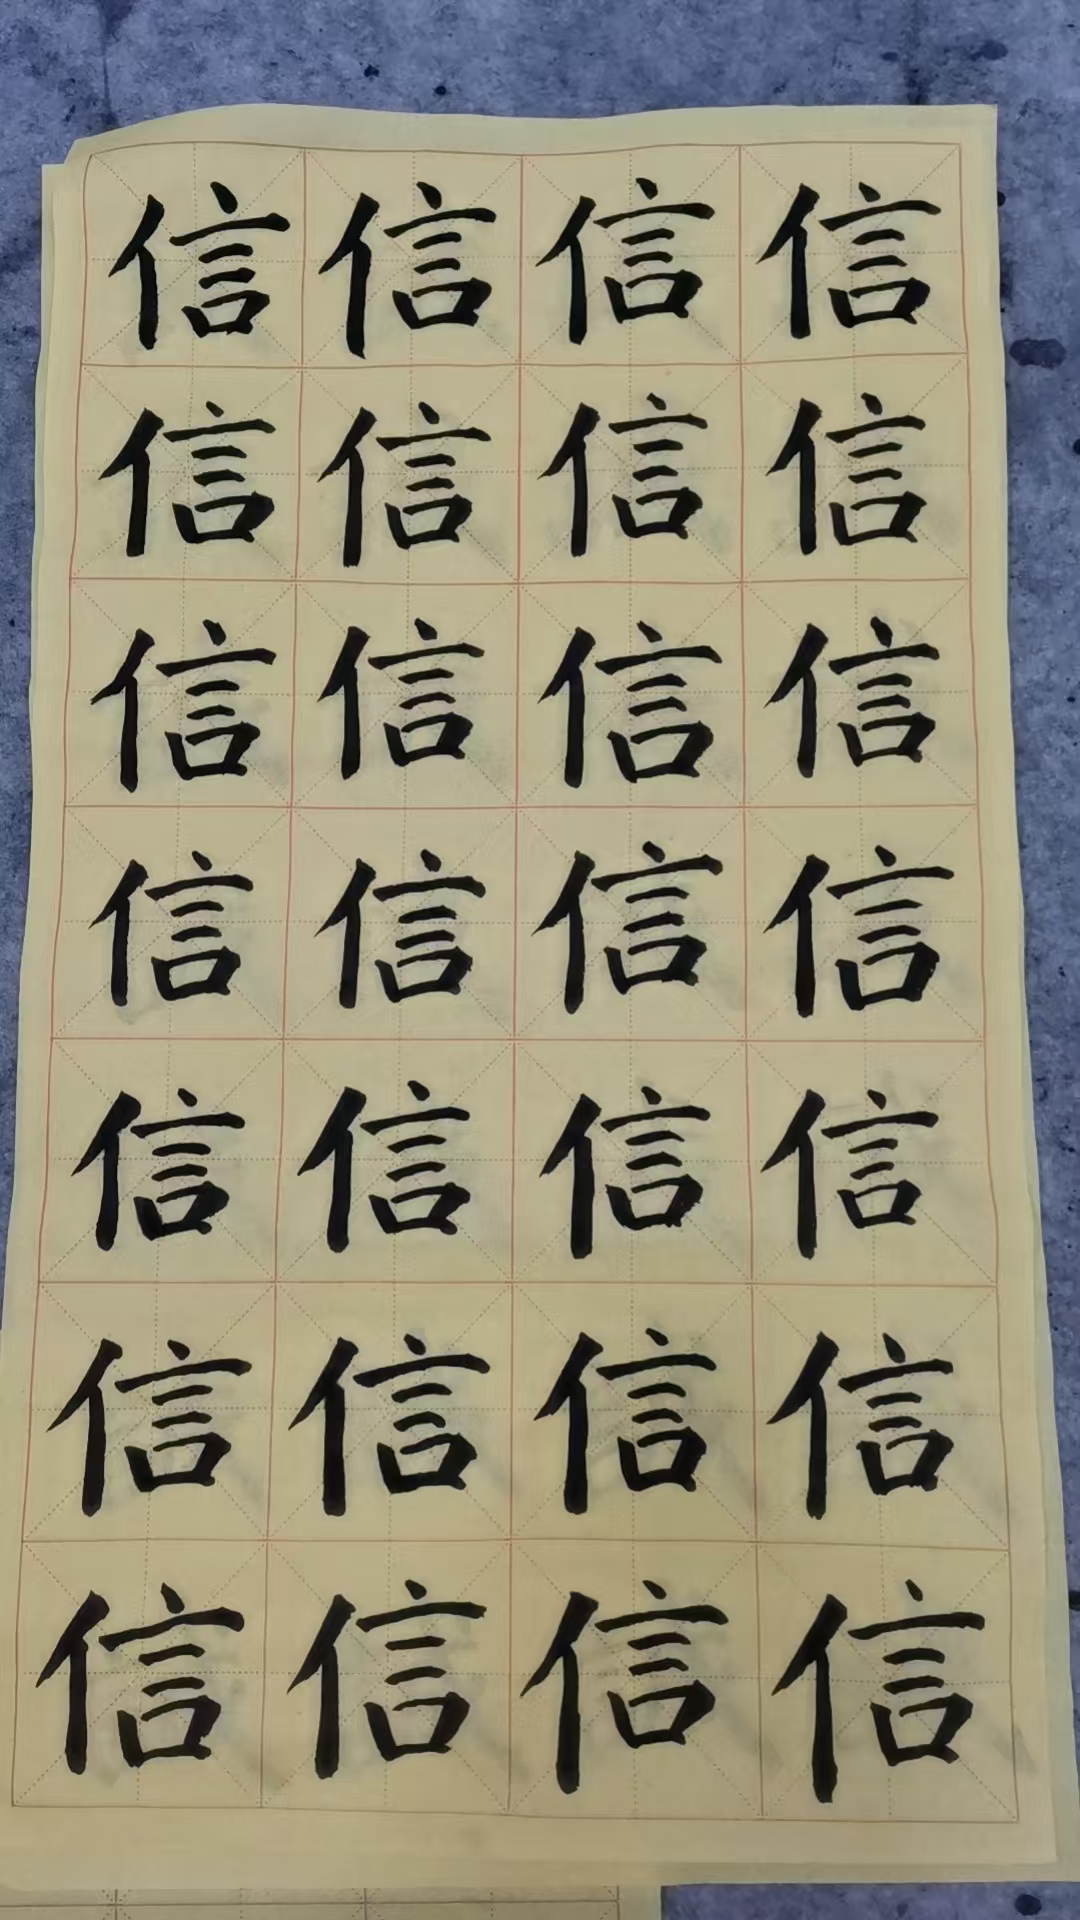 信信信信
信信信信
信信信信
信信信信
信信信信
信信信信
信信信信